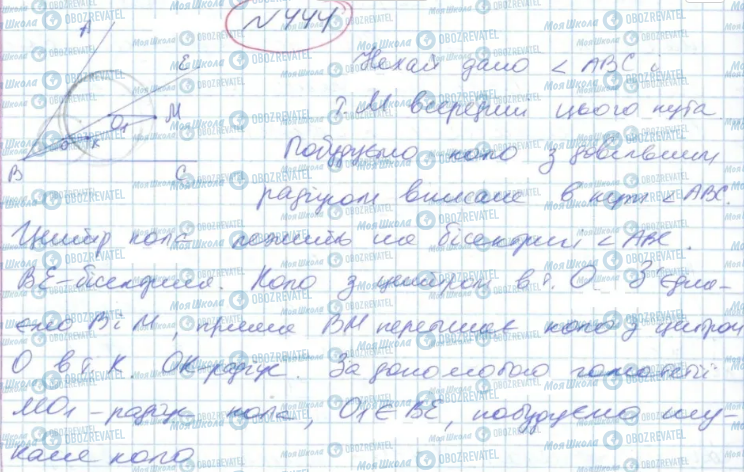 №444
A
E
Нехай дано ∠ABC і
т. M всередині цього кута.
O₁
M
O
K
B
C
Побудуємо коло з довільним
радіусом вписане в кут ∠ABC.
Центр кола лежить на бісектрисі ∠ABC.
BE-бісектриса. Коло з центром в т. O. З'єдна-
ємо B і M, пряма BM перетинає коло з центром
O в т. K. OK-радіус. За допомогою гомотетії
MO₁-радіус кола, O₁ ∈ BE, побудуємо шу-
кане коло
Моя Школа
OBOZREVATEL